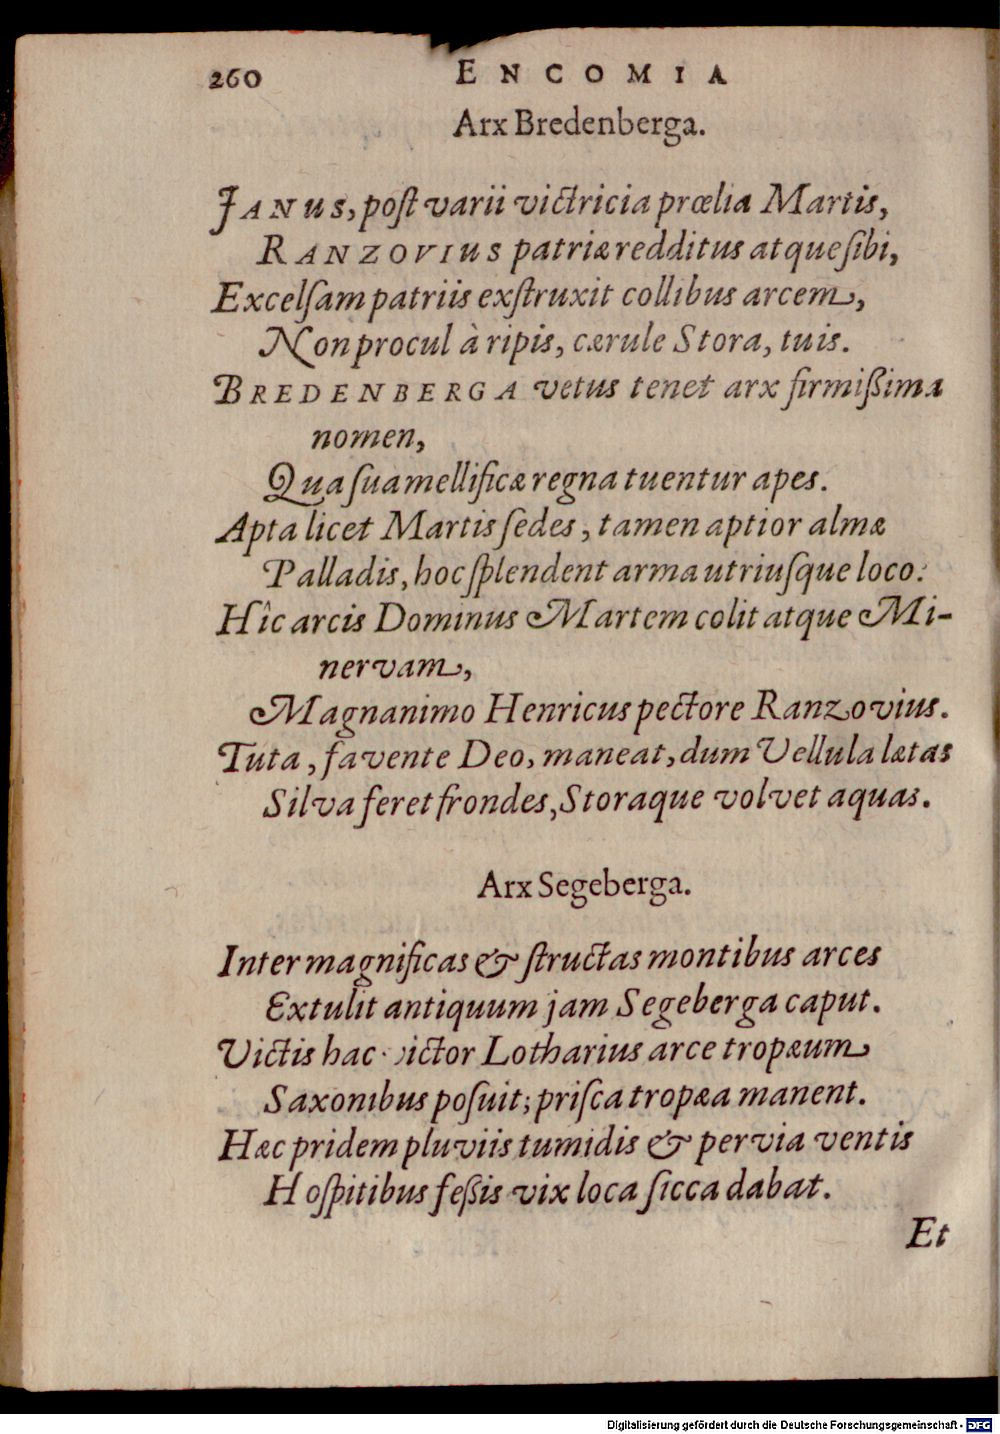 260 ENCOMIA
Arx Bredenberga.
JANUS, poſt varii victricia prœlia Martis,
RANZOVIUS patriæ redditus atque ſibi,
Excelſam patriis exſtruxit collibus arcem,
Non procul à ripis, cærule Stora, tuis.
BREDENBERGA vetus tenet arx firmißima
nomen,
Qua ſua mellificæ regna tuentur apes.
Apta licet Martis ſedes, tamen aptior almæ
Palladis, hoc ſplendent arma utriuſque loco.
Hîc arcis Dominus Martem colit atque Mi-
nervam,
Magnanimo Henricus pectore Ranzovius.
Tuta, favente Deo, maneat, dum Vellula lætas
Silva feret frondes, Storaque volvet aquas.
Arx Segeberga.
Inter magnificas & ſtructas montibus arces
Extulit antiquum jam Segeberga caput.
Victis hac victor Lotharius arce tropæum
Saxonibus poſuit; priſca tropæa manent.
Hæc pridem pluviis tumidis & pervia ventis
Hoſpitibus feßis vix loca ſicca dabat.
Et
Digitalisierung gefördert durch die Deutsche Forschungsgemeinschaft - DFG